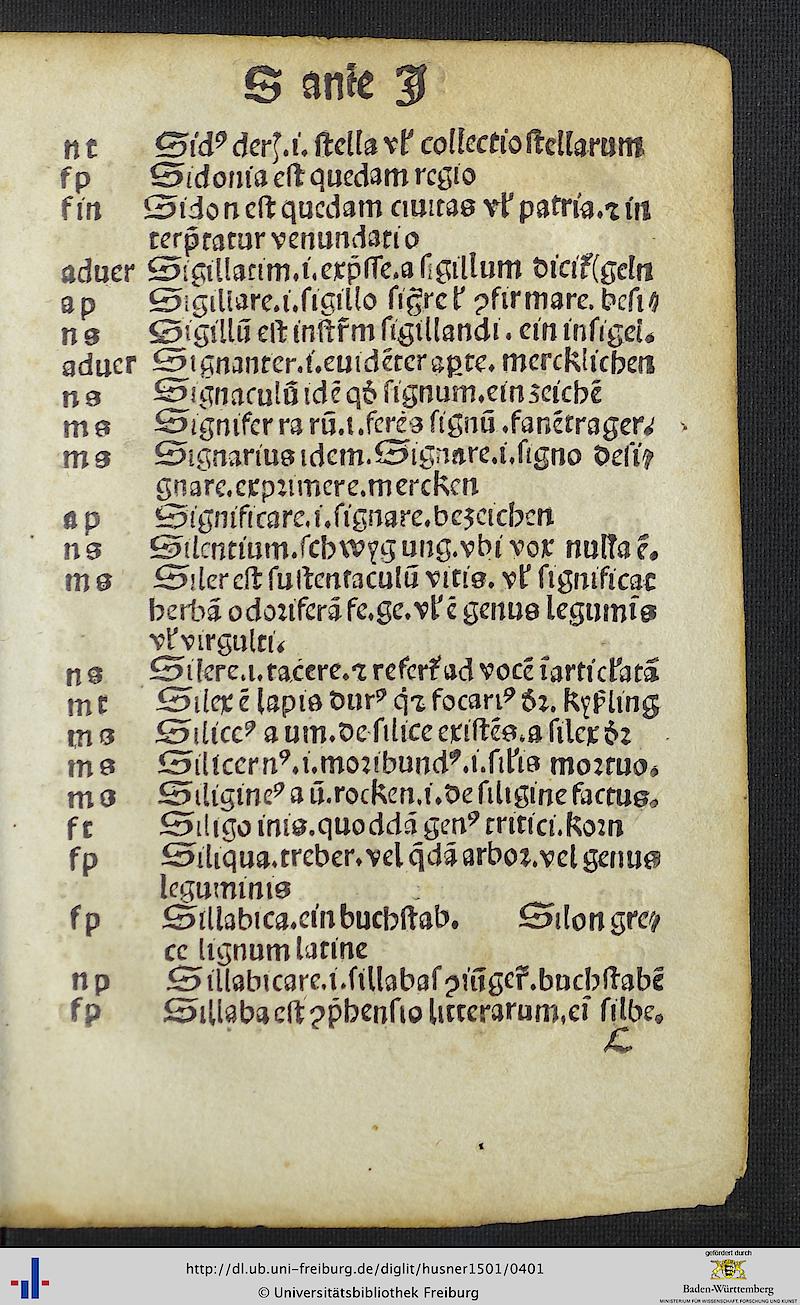 S ante J
nt Sidꝰ derꝭ.i. stella vł collectio stellarum
fp Sidonia est quedam regio
fin Sidon est quedam ciuitas vł patria.⁊ in
terp̄tatur venundatio
aduer Sigillatim.i.exp̄sse.a sigillum dicit̄(geln
ap Sigillare.i.sigillo sig̃re ł ꝯfirmare. besi⸗
ns Sigillū est instr̄m sigillandi. ein insigel.
aduer Signanter.i.euidēter aꝑte. mercklichen
ns Signaculū idē qđ signum.ein zeichē
ms Signifer ra rū.i.ferēs signū .fanētrager.
ms Signarius idem.Signare.i.signo desi⸗
gnare.exprimere.mercken
ap Significare.i.signare.bezeichen
ns Silentium.schwygung.vbi vox nulla ē.
ms Siler est sustentaculū vitis. vł significat
herbā odoriferā fe.ge.vł ē genus legumīs
vł virgulti.
ns Silere.i.tacere.⁊ refert̄ ad vocē īarticłatā
mt Silex ē lapis durꝰ q̇⁊ focariꝰ dr̄. kyßling
ms Siliceꝰ a um.de silice existēs.a silex dr̄
ms Silicernꝰ.i.moribundꝰ.i.siłis mortuo.
ms Siligineꝰ a ū.rocken.i.de siligine factus.
ft Siligo inis.quoddā genꝰ tritici.korn
fp Siliqua.treber.vel q̄dā arbor.vel genus
leguminis
fp Sillabica.ein buchstab. Silon gre⸗
ce lignum latine
np Sillabicare.i.sillabas ꝯiūger̄.buchstabē
fp Sillaba est ꝯp̄hensio litterarum,eī silbe.
L
http://dl.ub.uni-freiburg.de/diglit/husner1501/0401
© Universitätsbibliothek Freiburg
gefördert durch
Baden-Württemberg
MINISTERIUM FÜR WISSENSCHAFT, FORSCHUNG UND KUNST